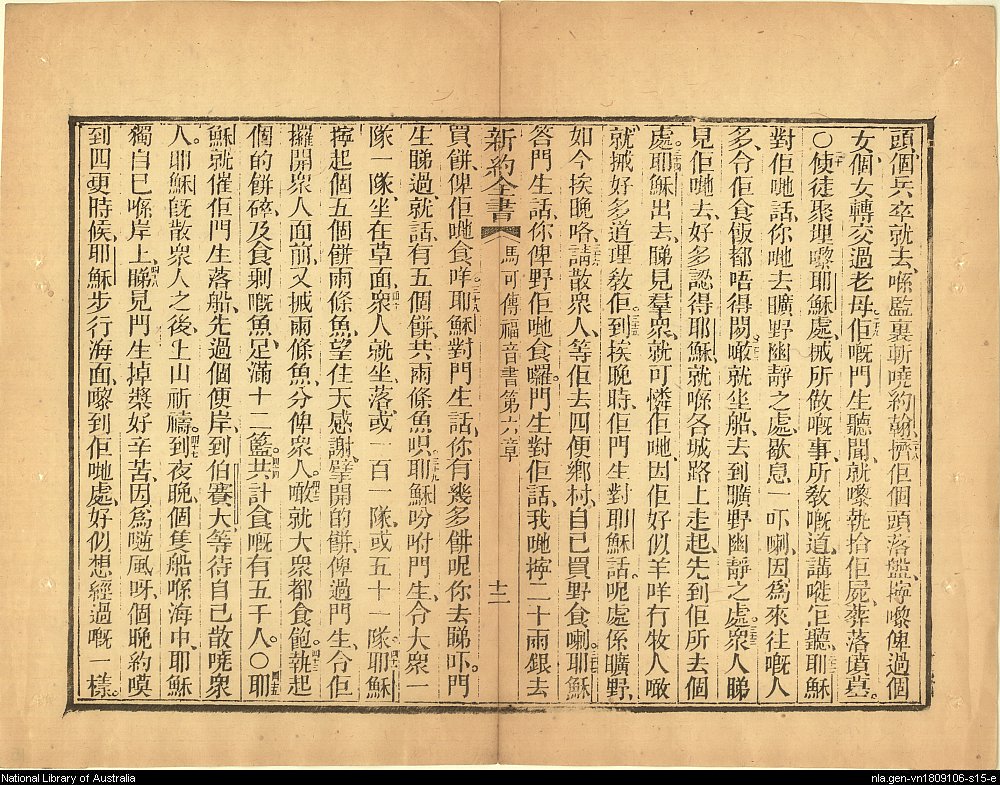 頭、個兵卒就去、喺監裏斬曉約翰、二十八擠佢個頭落盤、擰嚟俾過個
女、個女轉交過老母、二十九佢嘅門生聽聞、就嚟執拾佢屍、葬落墳墓。
○三十使徒聚埋嚟耶穌處、搣所做嘅事、所敎嘅道、講嘥佢聽、三十一耶穌
對佢哋話、你哋去曠野幽靜之處、歇息一吓喇、因爲來往嘅人
多、令佢食飯都唔得閒、三十二噉就坐船去到曠野幽靜之處。三十三衆人睇
見佢哋去、好多認得耶穌、就喺各城路上走起、先到佢所去個
處。三十四耶穌出去、睇見羣衆、就可憐佢哋、因佢好似羊咩冇牧人噉
就搣好多道理敎佢。三十五到挨晚時、佢門生對耶穌話、呢處係曠野、
如今挨晚咯、三十六請散衆人、等佢去四便鄉村、自己買野食喇。三十七耶穌
答門生話、你俾野佢哋食囉。門生對佢話、我哋擰二十兩銀去
新約全書 馬可傳福音書第六章 十二
買餅俾佢哋食咩。三十八耶穌對門生話、你有幾多餅呢、你去睇吓。門
生睇過、就話、有五個餅、共兩條魚唄。三十九耶穌吩咐門生、令大衆一
隊一隊、坐在草面、四十衆人就坐落、或一百一隊、或五十一隊。四十一耶穌
擰起個五個餅兩條魚、望住天感謝、擘開的餅、俾過門生、令佢
擺開衆人面前、又搣兩條魚、分俾衆人。四十二噉就大衆都食飽、四十三執起
個的餅碎、及食剩嘅魚、足滿十二籃。四十四共計食嘅有五千人。○四十五耶
穌就催佢門生落船、先過個便岸、到伯賽大、等待自己散曉衆
人、四十六耶穌旣散衆人之後、上山祈禱。四十七到夜晚、個隻船喺海中、耶穌
獨自己喺岸上、四十八睇見門生掉槳好辛苦、因爲𠹌風呀、個晚約嘆
到四更時候、耶穌步行海面、嚟到佢哋處、好似想經過嘅一樣。
National Library of Australia
nla.gen-vn1809106-s15-e